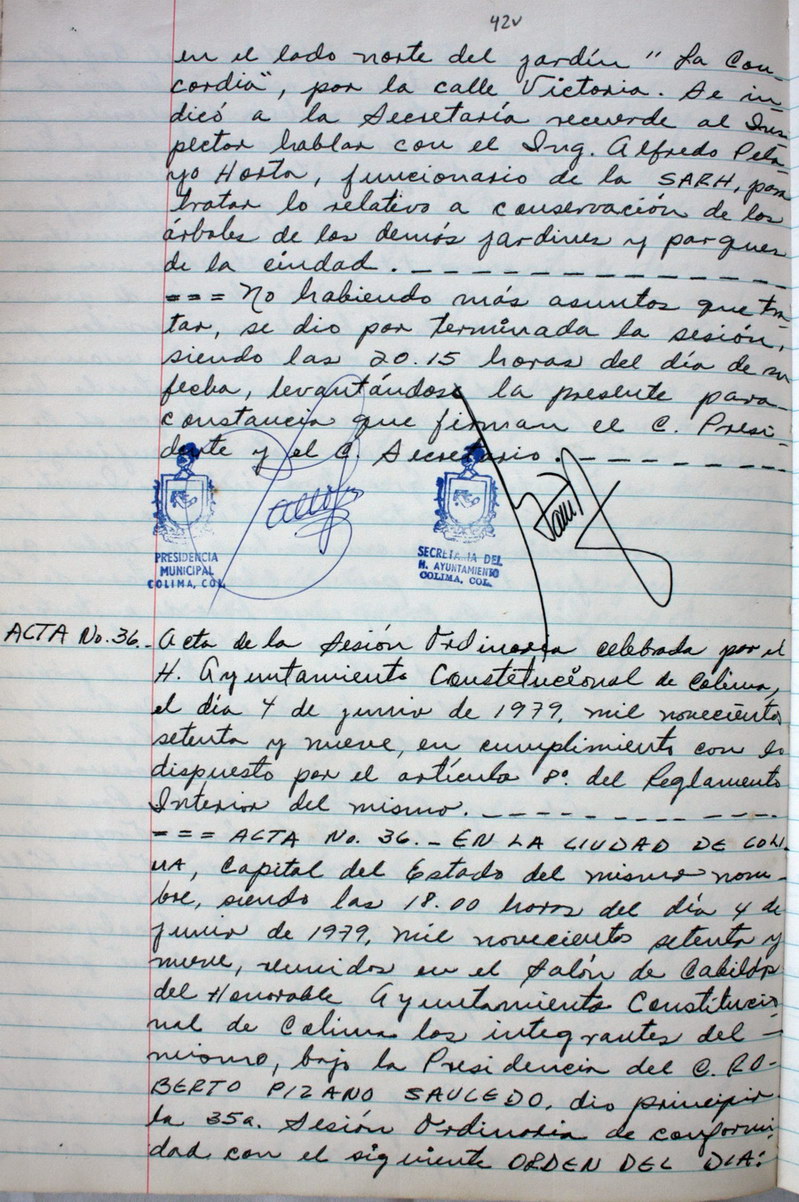 42v
en el lado norte del jardín "La Con-
cordia", por la calle Victoria. Se in
dicó a la Secretaría recuerde al Ins
pector hablar con el Ing. Alfredo Pela-
yo Horta, funcionario de la SARH, para
tratar lo relativo a conservación de los
árboles de los demás jardines y parques
de la ciudad. _ _ _ _ _ _ _ _ _ _ _ _
=== No habiendo más asuntos que tra
tar, se dio por terminada la sesión,
siendo las 20.15 horas del día de su
fecha, levantándose la presente para
constancia que firman el C. Presi-
dente y el C. Secretario. _ _ _ _ _ _ _
PRESIDENCIA
MUNICIPAL
COLIMA, COL.
SECRETARIA DEL
H. AYUNTAMIENTO
COLIMA, COL.
ACTA No. 36.- Acta de la Sesión Ordinaria celebrada por el
H. Ayuntamiento Constitucional de Colima,
el día 4 de junio de 1979, mil novecientos
setenta y nueve, en cumplimiento con lo
dispuesto por el artículo 8o. del Reglamento
Interior del mismo. _ _ _ _ _ _ _ _ _ _
=== ACTA No. 36.- EN LA CIUDAD DE COLI-
MA, Capital del Estado del mismo nom-
bre, siendo las 18.00 horas del día 4 de
junio de 1979, mil novecientos setenta y
nueve, reunidos en el Salón de Cabildos
del Honorable Ayuntamiento Constitucio
nal de Colima los integrantes del -
mismo, bajo la Presidencia del C. RO-
BERTO PIZANO SAUCEDO, dio principio
la 35a. Sesión Ordinaria de conformi-
dad con el siguiente ORDEN DEL DIA: